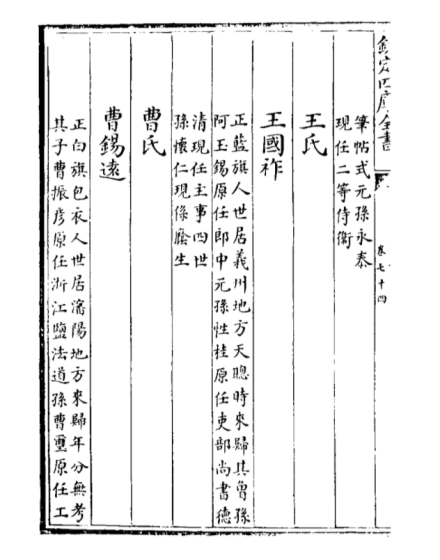 欽定四庫全書
卷七十四
筆帖式元孫永泰
現任二等侍衛
王氏
王國祚
正藍旗人世居義州地方天聰時來歸其曾孫
阿玉錫原任郎中元孫性桂原任吏部尚書德
清現任主事四世
孫懷仁現係廕生
曹氏
曹錫遠
正白旗包衣人世居瀋陽地方來歸年分無考
其子曹振彥原任浙江鹽法道孫曹璽原任工